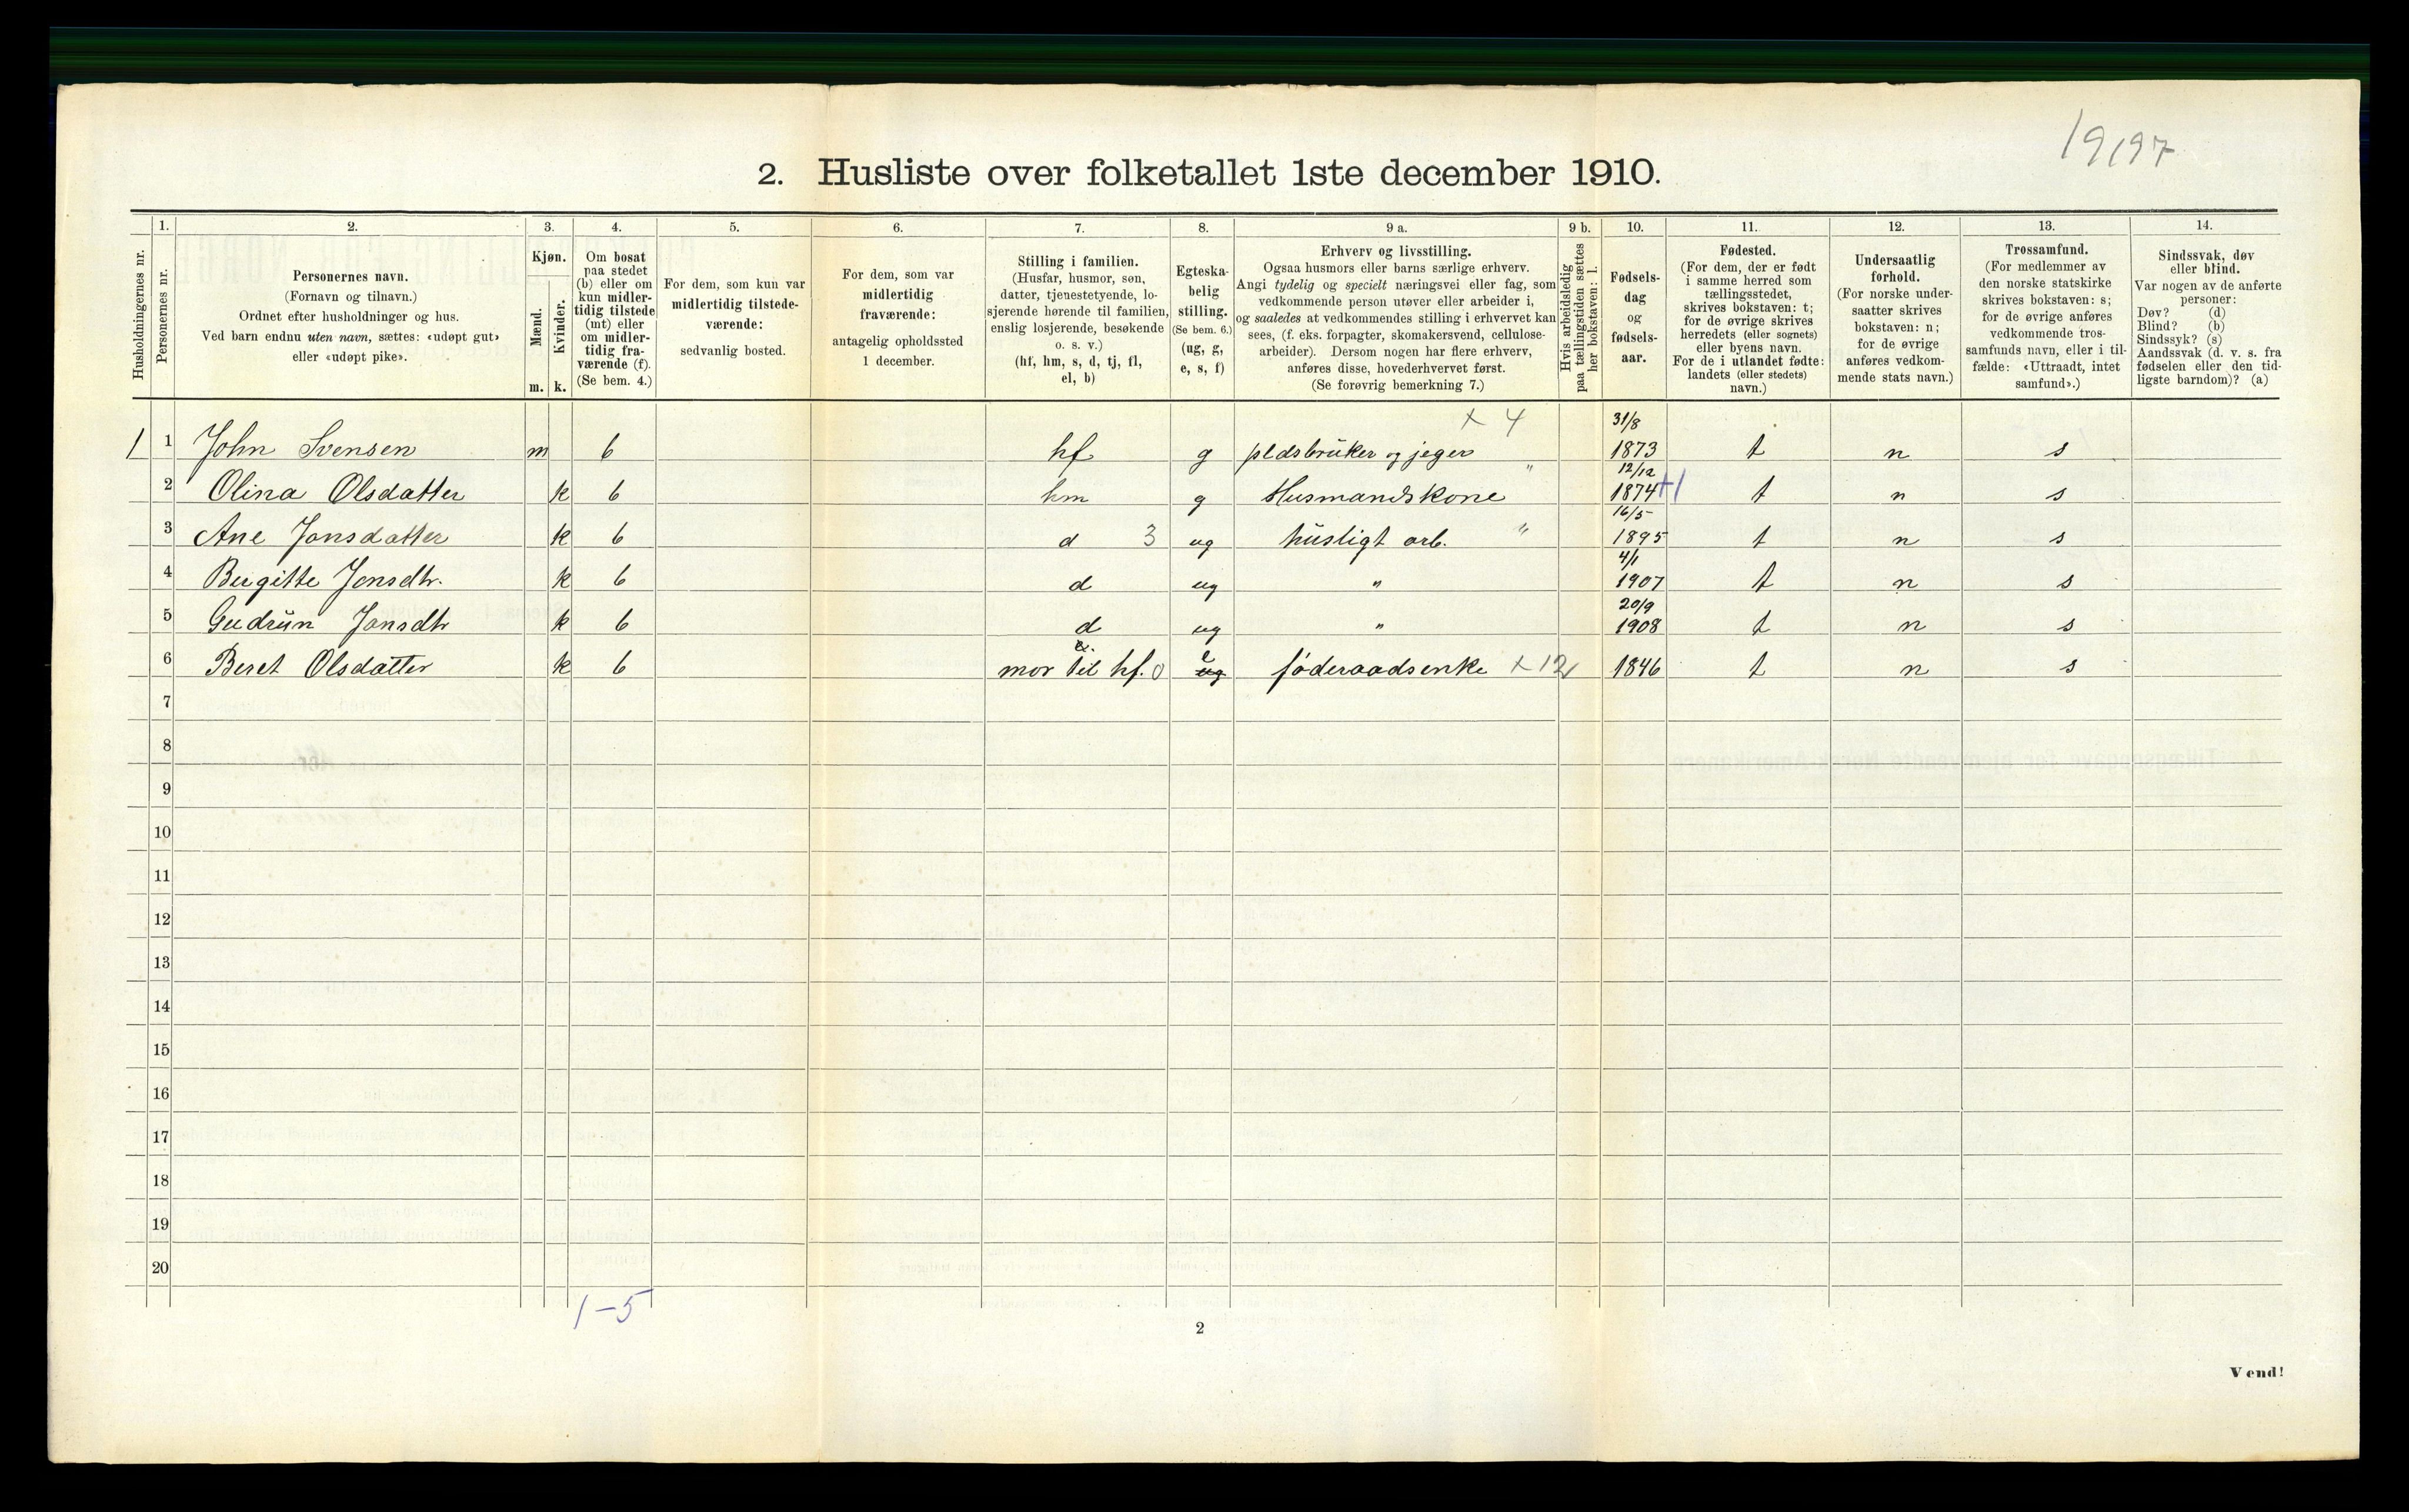 19197
2. Husliste over folketallet 1ste december 1910.
1. 2. 3. 4. 5. 6. 7. 8. 9 a. 9 b. 10. 11. 12. 13. 14.
Husholdningernes nr.
Personernes nr.
Personernes navn.
(Fornavn og tilnavn.)
Ordnet efter husholdninger og hus.
Ved barn endnu uten navn, sættes: «udøpt gut»
eller «udøpt pike».
Kjøn.
Mænd.
Kvinder.
m. k.
Om bosat
paa stedet
(b) eller om
kun midler-
tidig tilstede
(mt) eller
om midler-
tidig fra-
værende (f).
(Se bem. 4.)
For dem, som kun var
midlertidig tilstede-
værende:
sedvanlig bosted.
For dem, som var
midlertidig
fraværende:
antagelig opholdssted
1 december.
Stilling i familien.
(Husfar, husmor, søn,
datter, tjenestetyende, lo-
sjerende hørende til familien,
enslig losjerende, besøkende
o. s. v.)
(hf, hm, s, d, tj, fl,
el, b)
Egteska-
belig
stilling.
(Se bem. 6.)
(ug, g,
e, s, f)
Erhverv og livsstilling.
Ogsaa husmors eller barns særlige erhverv.
Angi tydelig og specielt næringsvei eller fag, som
vedkommende person utøver eller arbeider i,
og saaledes at vedkommendes stilling i erhvervet kan
sees, (f. eks. forpagter, skomakersvend, cellulose-
arbeider). Dersom nogen har flere erhverv,
anføres disse, hovederhvervet først.
(Se forøvrig bemerkning 7.)
Hvis arbeidsledig
paa tællingstiden sættes
her bokstaven: l.
Fødsels-
dag
og
fødsels-
aar.
Fødested.
(For dem, der er født
i samme herred som
tællingsstedet,
skrives bokstaven: t;
for de øvrige skrives
herredets (eller sognets)
eller byens navn.
For de i utlandet fødte:
landets (eller stedets)
navn.)
Undersaatlig
forhold.
(For norske under-
saatter skrives
bokstaven: n;
for de øvrige
anføres vedkom-
mende stats navn.)
Trossamfund.
(For medlemmer av
den norske statskirke
skrives bokstaven: s;
for de øvrige anføres
vedkommende tros-
samfunds navn, eller i til-
fælde: «Uttraadt, intet
samfund».)
Sindssvak, døv
eller blind.
Var nogen av de anførte
personer:
Døv? (d)
Blind? (b)
Sindssyk? (s)
Aandssvak (d. v. s. fra
fødselen eller den tid-
ligste barndom)? (a)
x 4 31/8
1 1 John Svensen m b hf g pldsbruker og jeger 1873 t n s
" 12/12
2 Olina Olsdatter k b hm g Husmandskone 1874 +1 t n s
16/5
3 Ane Jonsdatter k b d 3 ug husligt arb. " 1895 t n s
4/1
4 Birgitte Jonsdtr. k b d ug " 1907 t n s
20/9
5 Gudrun Jonsdtr k b d ug " 1908 t n s
6 Beret Olsdatter k b mor til hf. 0 e ug føderaadsenke x 12 1846 t n s
7
8
9
10
11
12
13
14
15
16
17
18
19
20
1-5
2
Vend!